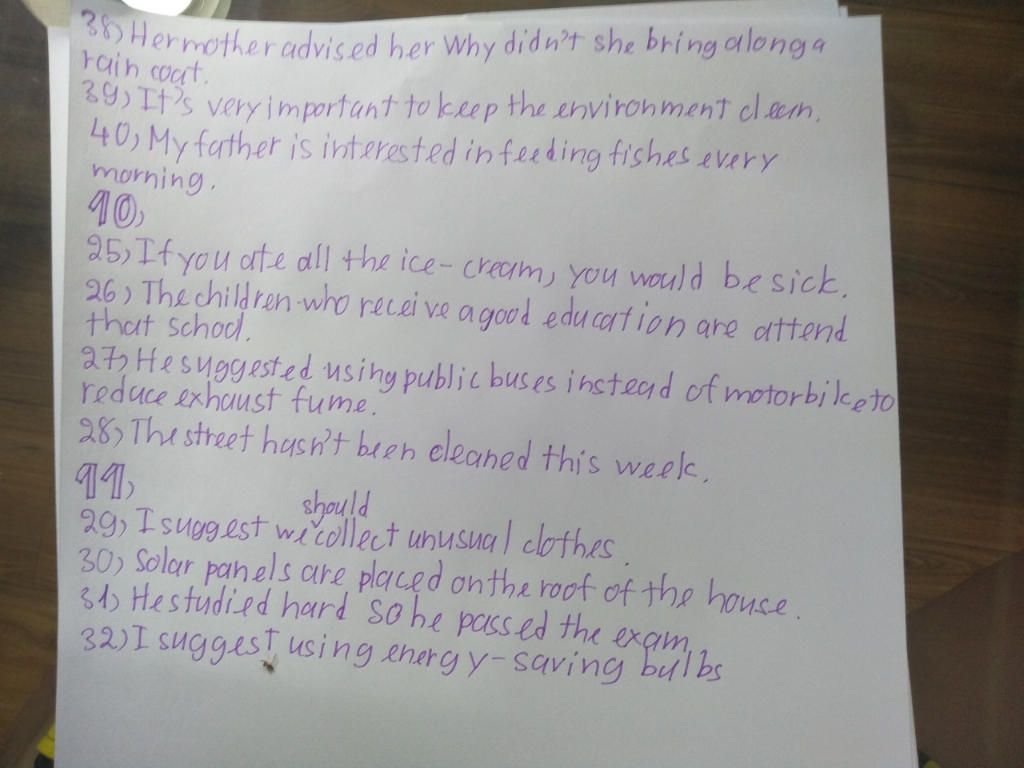 38) Her mother advised her Why didn't she bring along a
rain coat.
39) It's very important to keep the environment clean.
40) My father is interested in feeding fishes every
morning.
10)
25) If you ate all the ice-cream, you would be sick.
26) The children who receive a good education are attend
that school.
27) He suggested using public buses instead of motorbike to
reduce exhaust fume.
28) The street hasn't been cleaned this week.
11)
should
29) I suggest we collect unusual clothes.
30) Solar panels are placed on the roof of the house.
31) He studied hard so he passed the exam.
32) I suggest using energy-saving bulbs